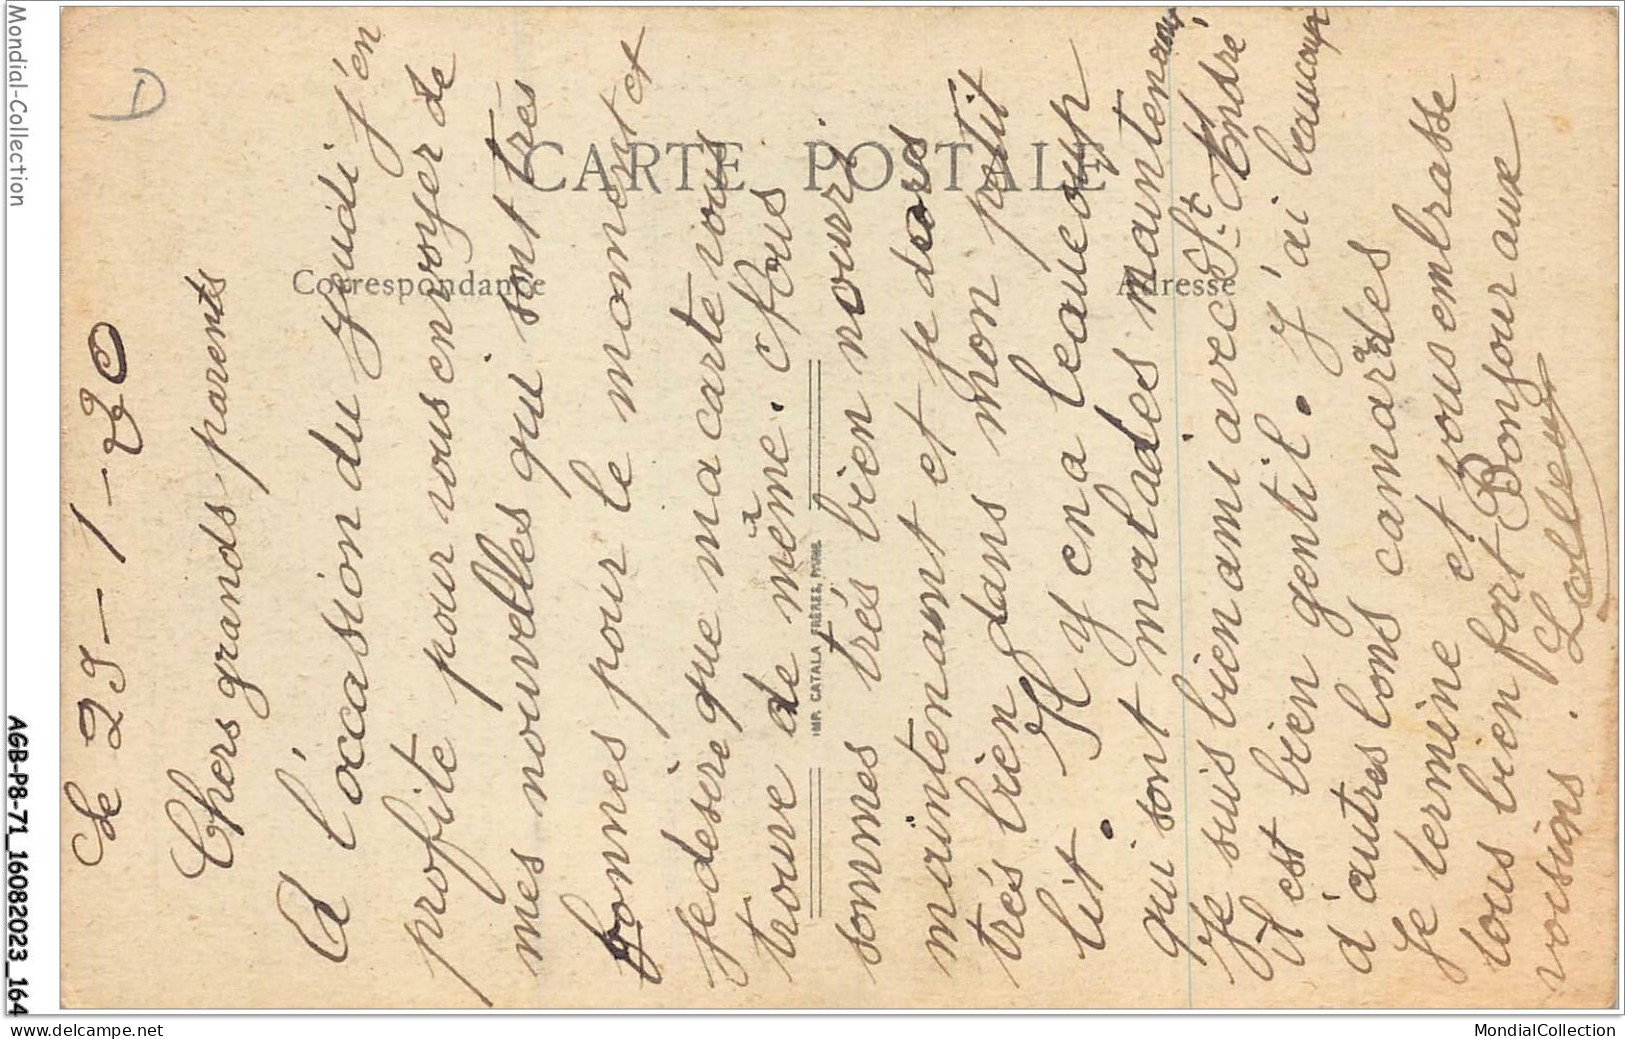 Le 29-1-20
Chers grands parents
A l'occasion du jeudi j'en
profite pour vous envoyer de
mes nouvelles qui sont très
bonnes pour le moment et
je desire que ma carte vous
trouve de même. Nous
sommes très bien nourri.
maintenant et je dors
très bien dans mon petit
lit. Il y en a beaucoup
qui sont malades maintenant
Je suis bien ami avec St. André
il est bien gentil. J'ai beaucoup
d'autres bons camarades
Je termine et vous embrasse
tous bien fort Bonjour aux
voisins.
CARTE POSTALE
Correspondance
Adresse
IMP. CATALA FRÈRES, PARIS
D
Mondial-Collection
AGB-P8-71_16082023_164
www.delcampe.net
MondialCollection